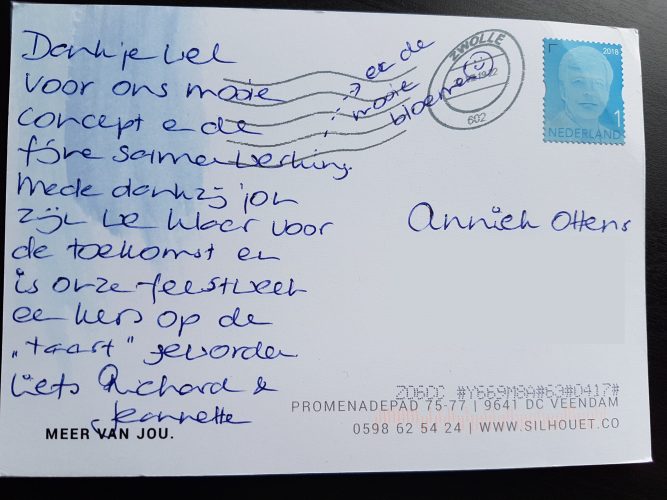 Dankje wel
voor ons mooie
concept en de
fijne samenwerking.
→ en de
mooie
bloemen
Mede dankzij jou
zijn we klaar voor
de toekomst en
is onze feestweek
een kers op de
"taart" geworden
Liefs Richard &
Jeannette
MEER VAN JOU.
ZWOLLE
602
2018
1
NEDERLAND
Annick Ottens
ZO6CC #Y669M8A#63#0417#
PROMENADEPAD 75-77 | 9641 DC VEENDAM
0598 62 54 24 | WWW.SILHOUET.CO